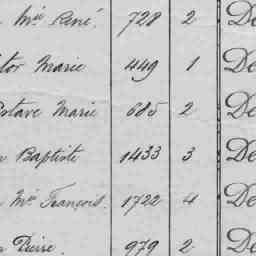 Mie René. 728 2 De
tor Marie 449 1 De
ustave Marie 685 2 De
Baptiste 1433 3 De
Mie François. 1722 4 De
Pierre. 979 2 De